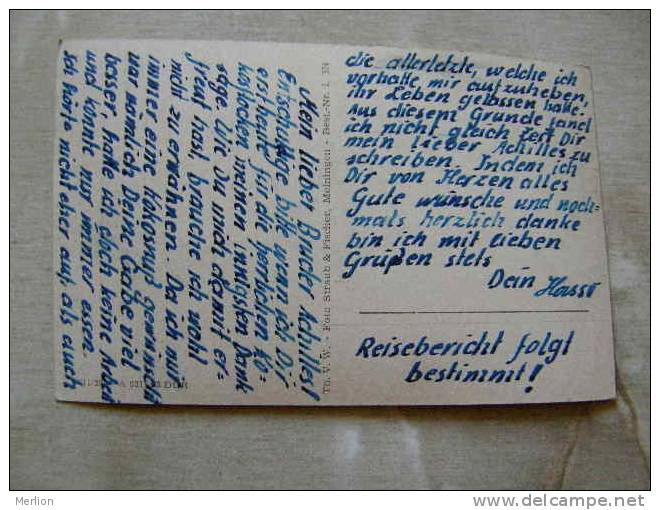 Mein lieber Bruder Achilles!
Entschuldige bitte wenn ich Dir
erst heut für die herrlichen Ko-
kosflocken meinen innigsten Dank
sage. Wie Du mich damit er-
freut hast, brauche ich wohl
nicht zu erwähnen. Da ich mir
immer eine Kokosnuß gewünscht
war nämlich Deine Gabe viel
besser, hatte ich doch keine Arbeit
und konnte nur immer essen.
Ich hört nicht eher auf, als auch
die allerletzte, welche ich
vorhatte mir aufzuheben,
ihr Leben gelassen hatte.
Aus diesem Grunde fand
ich nicht gleich Zeit Dir
mein lieber Achilles zu
schreiben. Indem ich
Dir von Herzen alles
Gute wünsche und noch-
mals herzlich danke
bin ich mit lieben
Grüßen stets
Dein Hasso
Reisebericht folgt
bestimmt!
Th. V. W. - Foto Straub & Fischer, Meiningen - Best.-Nr. L 3N
Merlion
www.delcampe.net